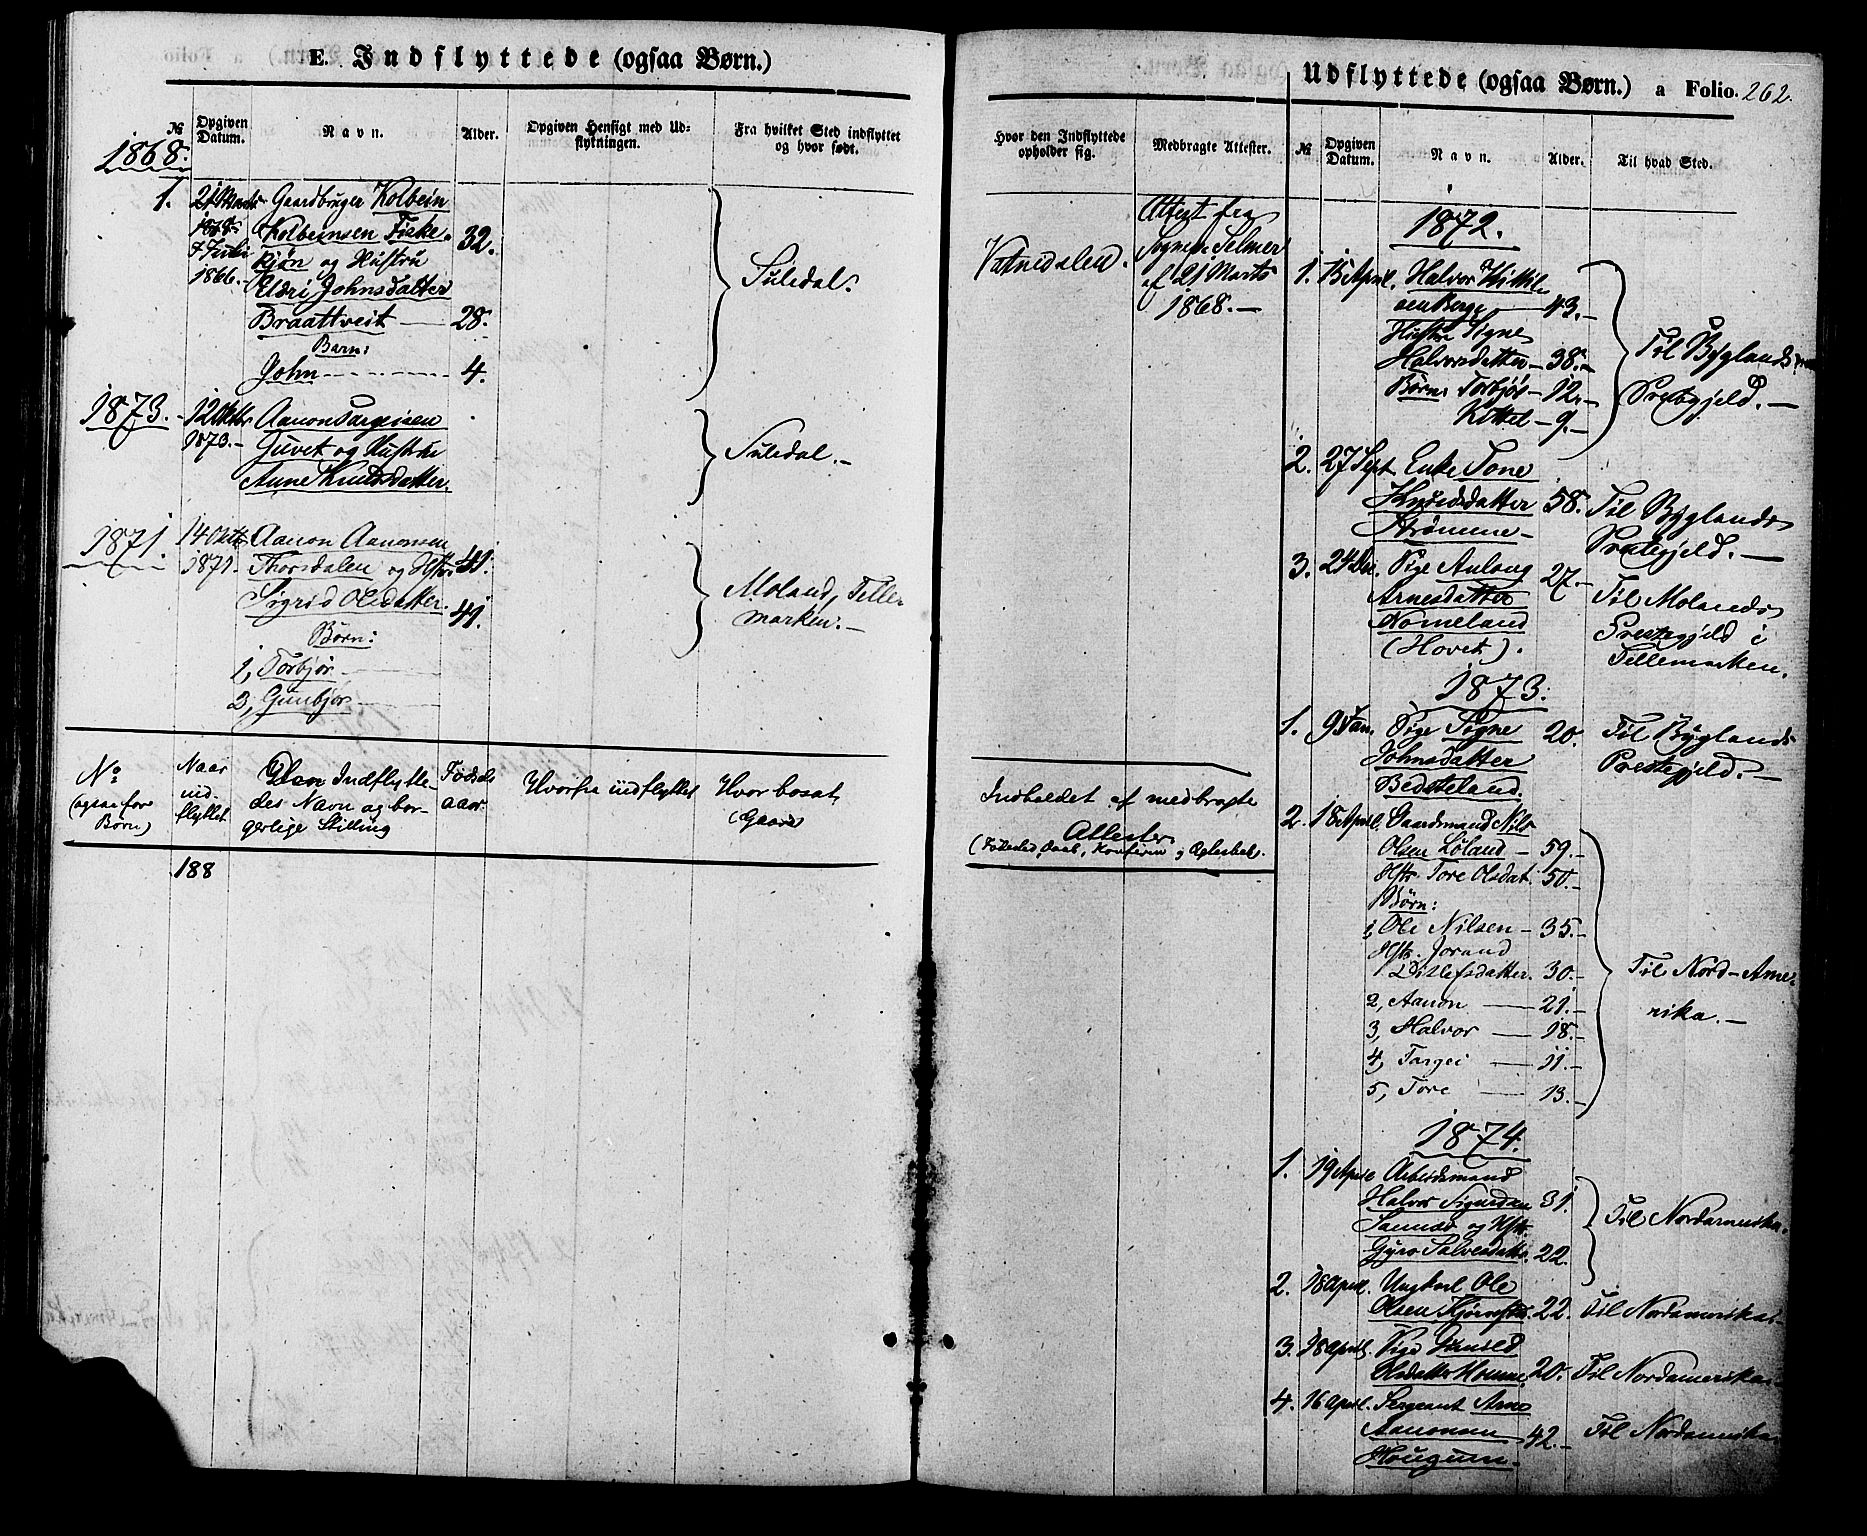 E. Indflyttede (ogsaa Børn.)
№
Opgiven Datum.
Navn.
Alder.
Opgiven Hensigt med Ud=
flytningen.
Fra hvilket Sted indflyttet
og hvor født.
1868.
1. 21 Marts Gaardbruger Kolbein
1868
Kolbeinsen Fiske- 32.
4 Juli
kjøn og Hustru
1866.
Eldri Johnsdatter
Braattveit — 28.
Barn:
John — 4.
Suledal.
1873. 12 Oktbr Aanon Targeisen
1873.- Juvet og Hustru
Anne Knudsdatter.
Suledal.-
1871. 14 Oktbr Aanon Aanonsen
1871. Thorsdalen og Hstr 41.
Sigrid Olsdatter. 41.
Børn:
1, Torbjør
2, Gunbjør
Moland, Telle
marken.-
No
(ogsaa for
Børn)
Naar
ind-
flyttet
Den Indflytte-
des Navn og bor-
gerlige Stilling
Fødsels
aar.
Hvorfra indflyttet
Hvor bosat,
(Gaard)
188
Hvor den Indflyttede
opholder sig.
Medbragte Attester.
Vatnedalen.
Attest fra
Sognepr. Selmer
af 21 Marts
1868.-
Indholdet af medbragte
Attester
(Fødested, Daab, Konfirm og Ægteskab).
Udflyttede (ogsaa Børn.) a Folio. 262.
№
Opgiven
Datum.
Navn.
Alder.
Til hvad Sted.
1872.
1. 15 April. Halvor Kittil
sen Berge — 43.-
Hustru Signe
Halvorsdatter - 38.-
Børn: Torbjør - 12.-
Kittel - 9.-
Til Byglands
Prestegjeld.-
2. 27 Sept. Enke Tone
Knudsdatter 58. Til Byglands
Strømme - Prestegjeld.-
3. 24 Dec. Pige Aslaug 27.-
Arnesdatter Til Molands
Nomeland Prestegjeld i
(Hovet). Tellemarken.
1873.
1. 9 Jan. Pige Signe 20. Til Byglands
Johnsdatter Prestegjeld.-
Bedsteland.
2. 18 April. Gaardmand Nils
Olsen Løland - 59.-
Hstr. Tore Olsdat. 50.-
Børn:
1, Ole Nilsen - 35.-
Hstr. Jorand
Ditlefsdatter. 30.-
2, Aanon — 21.-
3, Halvor — 18.-
4, Targei — 11.-
5, Tore — 13.-
Til Nord-Ame-
rika.-
1874.
1. 19 April Arbeidsmand
Halvor Sigurdsen 31.
og Hstr.
Gyro Salvesdatter. 22.
Til Nordamerika.
2. 18 April. Ungkarl Ole
Olsen 22. Til Nordamerika.-
3. 18 April. Pige Gunild
Olsdatter Homme. 20. Til Nordamerika.-
4. 16 April. Sergeant Arne
Aanonsen 42.- Til Nordamerika
Hougum.-